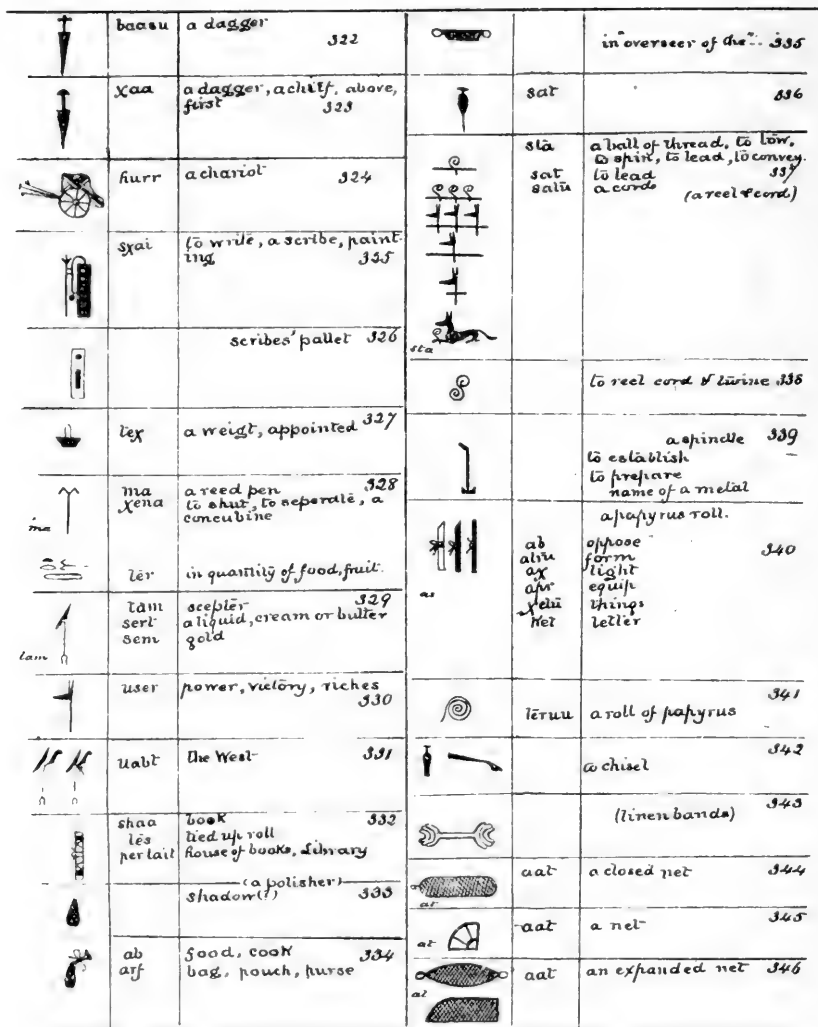 baasu a dagger 322
χaa a dagger, a chief, above,
first 323
hurr a chariot 324
sχai to write, a scribe, paint-
ing 325
scribes' pallet 326
tex a weigt, appointed 327
ma a reed pen 328
χena to shut, to seperate, a
concubine
ma
ter in quantity of food, fruit.
tam scepter 329
sert a liquid, cream or butter
sem gold
tam
user power, victory, riches
330
uabt the West 331
shaa book 332
tes tied up roll
per tait house of books, Library
(a polisher)
shadow(?) 333
ab food, cook 334
arf bag, pouch, purse
in "overseer of the" 335
sat 336
sta a ball of thread, to tow,
to spin, to lead, to convey.
sat to lead 337
satu a cord (a reel & cord)
sta
to reel cord & twine 338
a spindle 339
to establish
to prepare
name of a metal
a papyrus roll.
ab oppose 340
atru form
aχ light
apr equip
χetu things
net letter
as
teruu a roll of papyrus 341
a chisel 342
(linen bands) 343
aat a closed net 344
at
aat a net 345
at
aat an expanded net 346
at